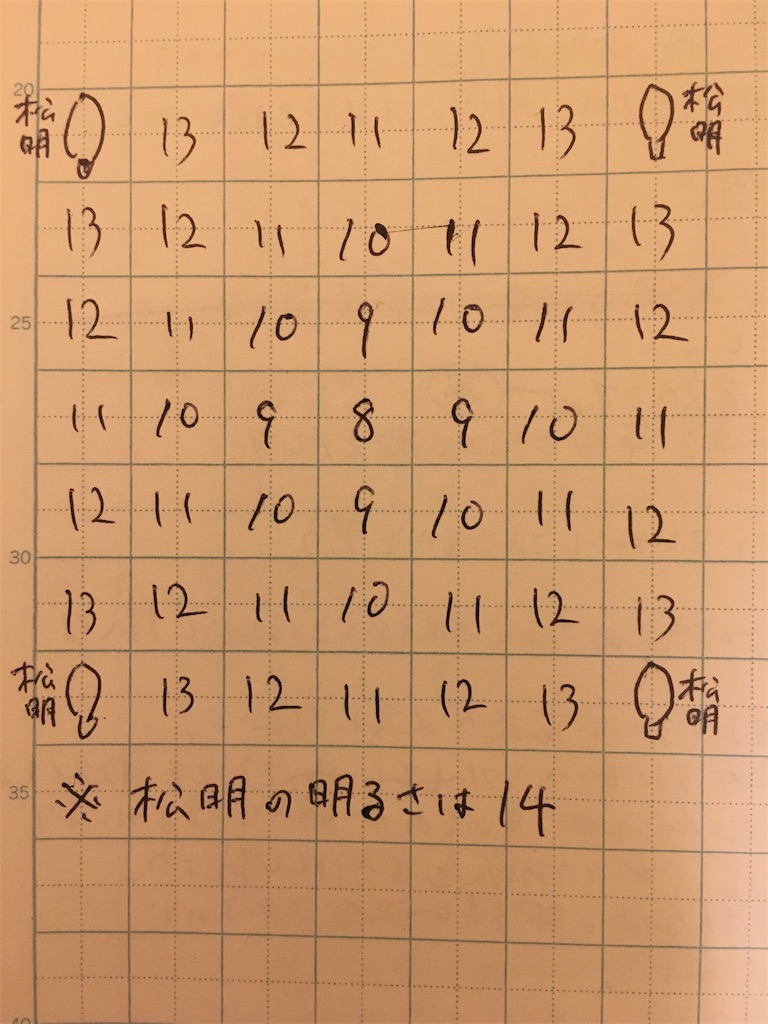 20
松明 13 12 11 12 13 松明
13 12 11 10 11 12 13
25 12 11 10 9 10 11 12
11 10 9 8 9 10 11
12 11 10 9 10 11 12
30
13 12 11 10 11 12 13
松明 13 12 11 12 13 松明
35 ※ 松明の明るさは14
40